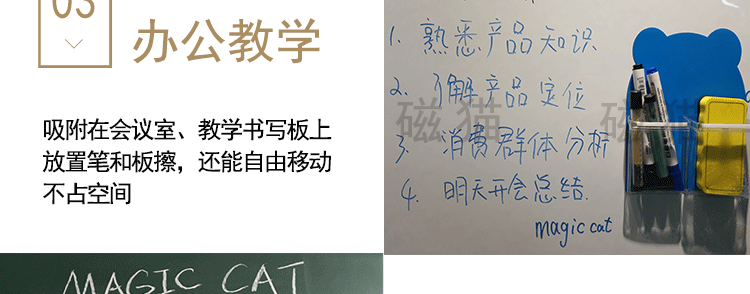 03
办公教学
吸附在会议室、教学书写板上
放置笔和板擦，还能自由移动
不占空间
1. 熟悉产品知识
2. 了解产品定位
3. 消费群体分析
4. 明天开会总结.
magic cat
磁猫
磁猫
MAGIC CAT